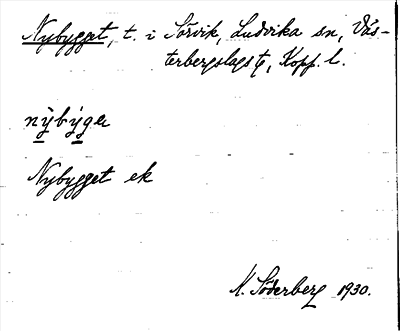 Nybygget, t. i Sörvik, Ludvika sn, Väs-
terbergslags tg, Kopp. l.
nỳbýgɘ
Nybygget ek
N. Söderberg 1930.